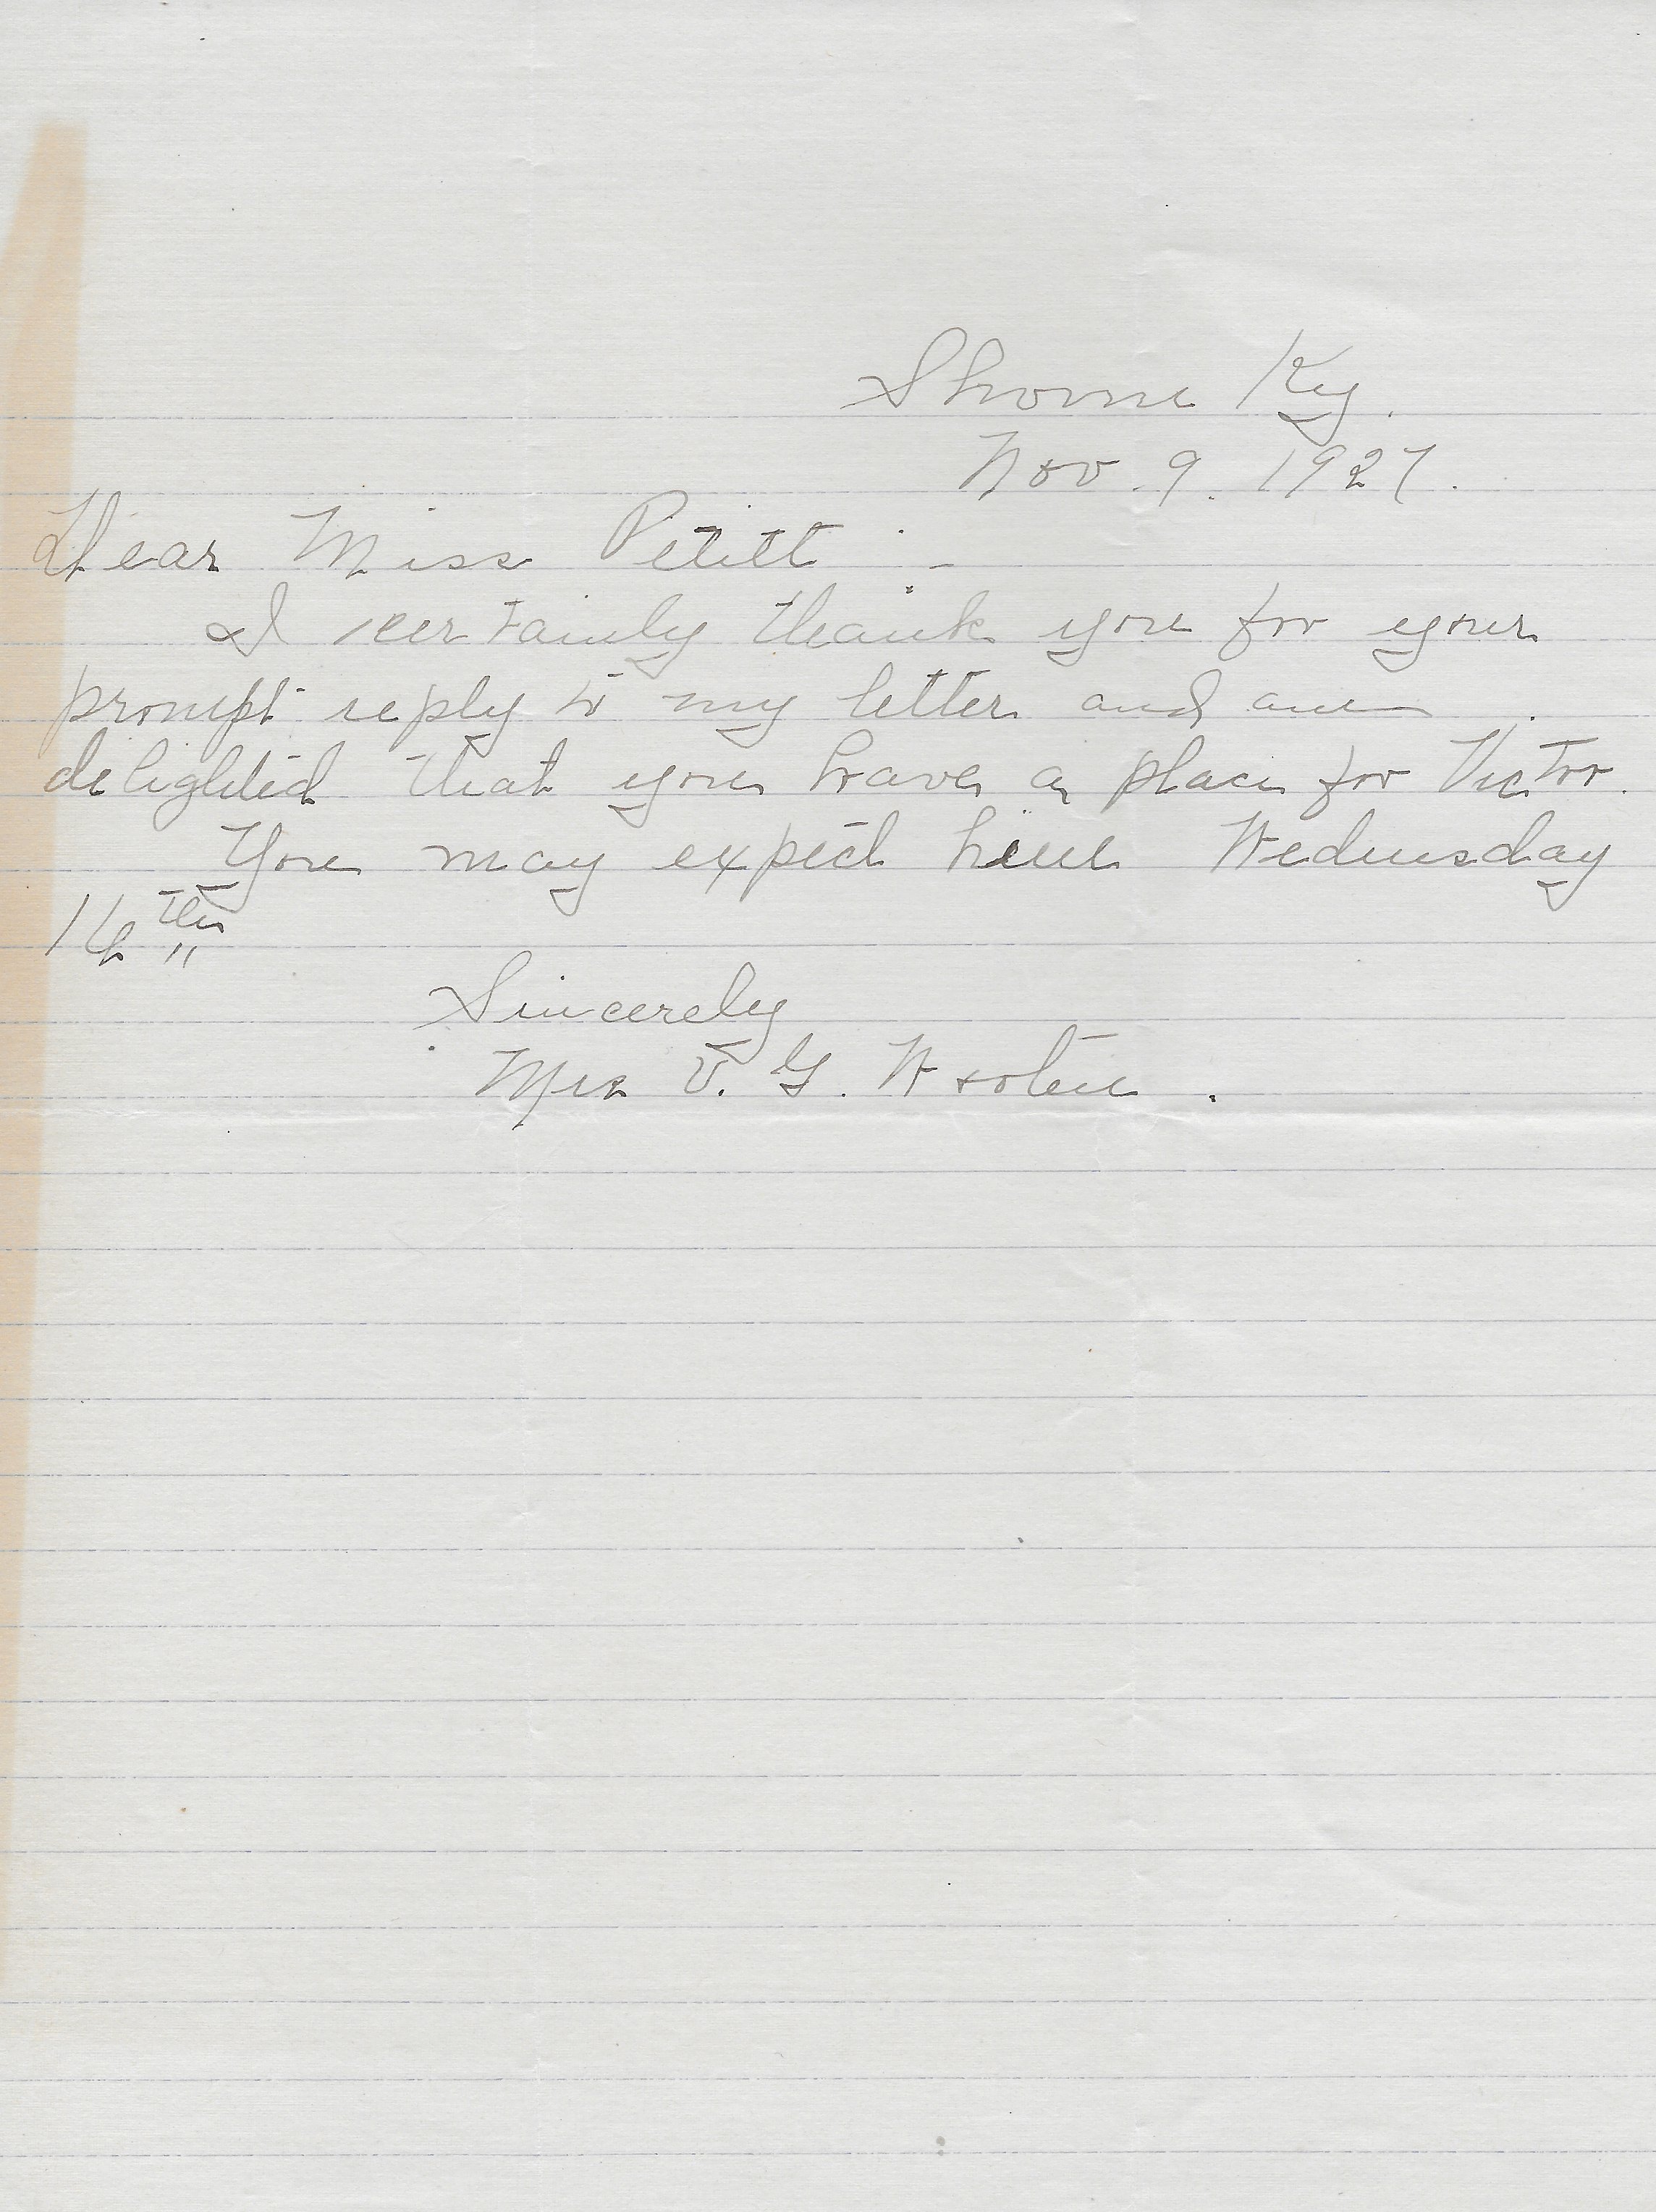 Ky.
Nov. 9. 1927.
Dear Miss Petitt :-
I certainly thank you for your
prompt reply to my letter and am
delighted that you have a place for Victor.
You may expect him Wednesday
16th
Sincerely
Mrs V. G. Wooten.